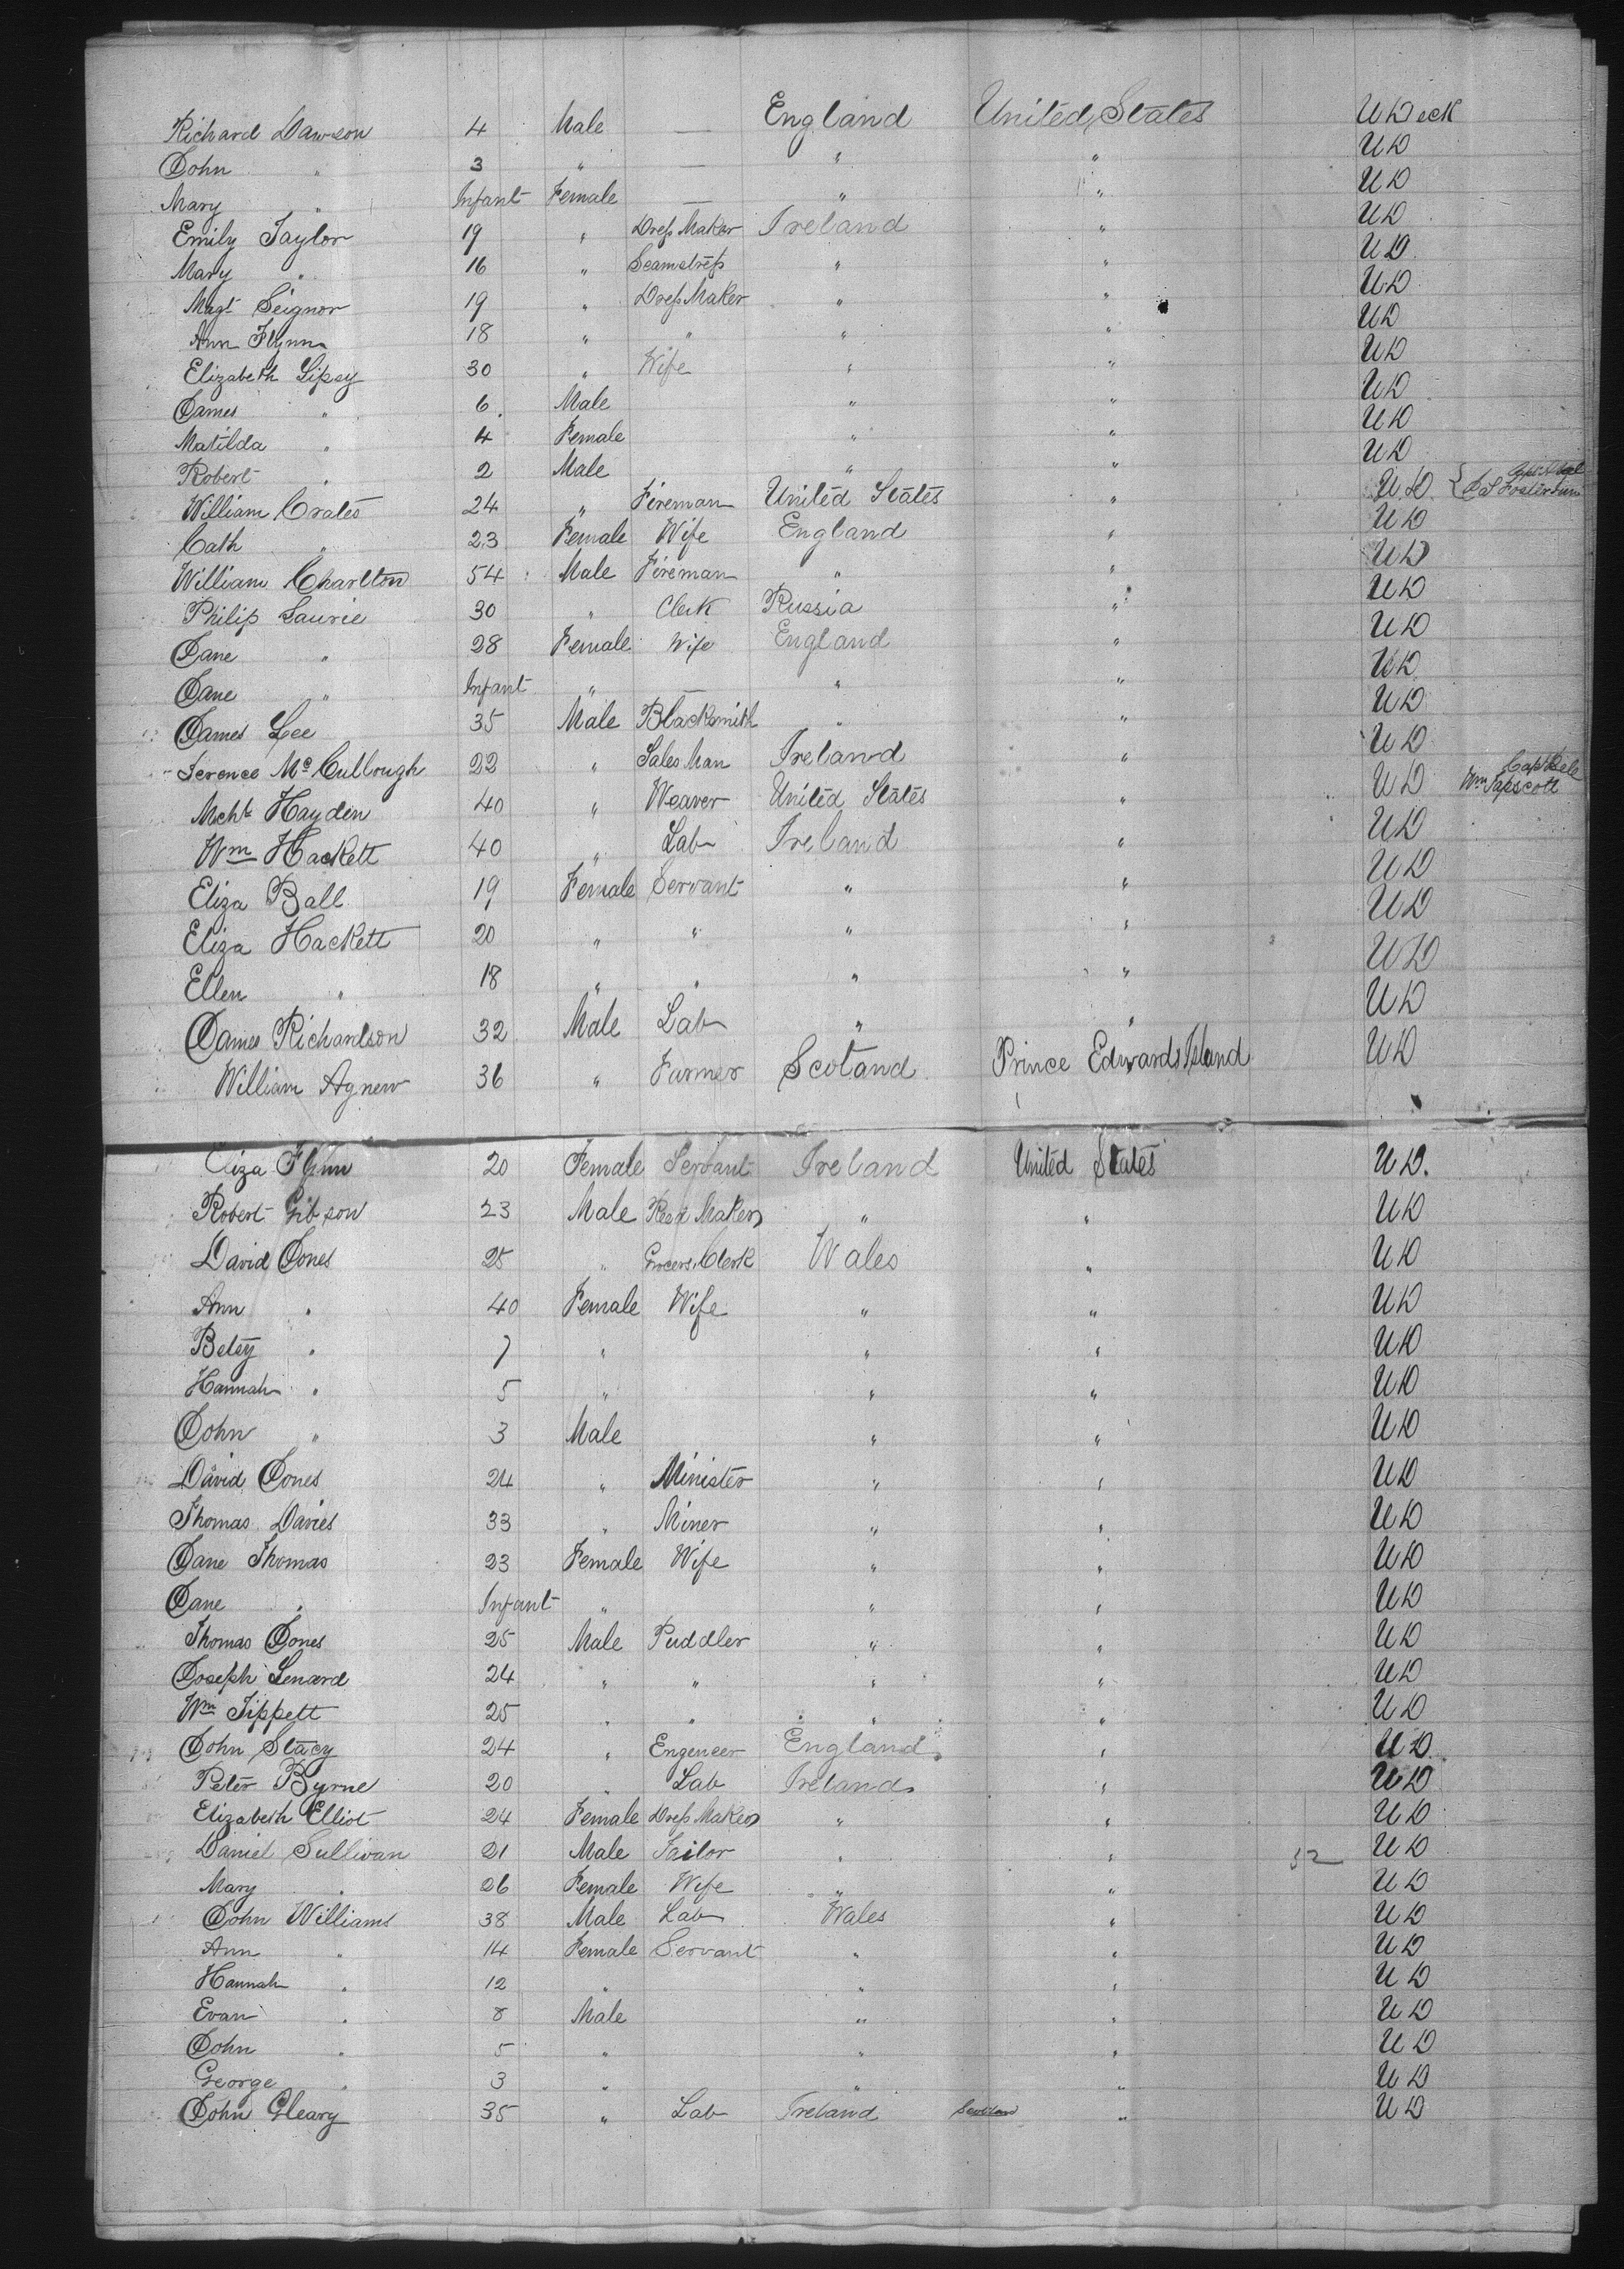 Richard Dawson 4 Male — England United States U Deck
John " 3 " — " " U D
Mary " Infant Female — " " U D
Emily Taylor 19 " Dress Maker Ireland " U D
Mary " 16 " Seamstress " " U D
Magt Seignor 19 " Dress Maker " " U D
Ann Flynn 18 " " " " U D
Elizabeth Lipsy 30 " Wife " " U D
James " 6 Male " " U D
Matilda " 4 Female " " U D
Robert " 2 Male " " U D
William Crates 24 " Fireman United States " U D
Cath " 23 Female Wife England " U D
William Charlton 54 Male Fireman " " U D
Philip Laurie 30 " Clerk Russia " U D
Jane " 28 Female Wife England " U D
Jane " Infant " — " " U D
James Lee 35 Male Blacksmith " " U D
Terence McCullough 22 " Sales Man Ireland " U D
Mcht Hayden 40 " Weaver United States " U D Wm Tapscott
Wm Hackett 40 " Lab Ireland " U D
Eliza Ball 19 Female Servant " " U D
Eliza Hackett 20 " " " " U D
Ellen " 18 " " " " U D
James Richardson 32 Male Lab " " U D
William Agnew 36 " Farmer Scotand Prince Edwards Island U D
Eliza Flynn 20 Female Servant Ireland United States U D.
Robert Gibson 23 Male Maker " " U D
David Jones 25 " Grocers Clerk Wales " U D
Ann " 40 Female Wife " " U D
Betsy " 7 " " " U D
Hannah " 5 " " " U D
John " 3 Male " " U D
David Jones 24 " Minister " " U D
Thomas Davies 33 " Miner " " U D
Jane Thomas 23 Female Wife " " U D
Jane " Infant " " " U D
Thomas Jones 25 Male Puddler " " U D
Joseph Lenard 24 " " " " U D
Wm Tippett 25 " " " " U D
John Stacy 24 " Engeneer England " U D
Peter Byrne 20 " Lab Ireland " U D
Elizabeth Elliot 24 Female Dress Maker " " U D
Daniel Sullivan 21 Male Tailor " " 52 U D
Mary " 26 Female Wife " " U D
John Williams 38 Male Lab Wales " U D
Ann " 14 Female Servant " " U D
Hannah " 12 " " " U D
Evan " 8 Male " " U D
John " 5 " " " U D
George " 3 " " " U D
John Gleary 35 " Lab Ireland " U D